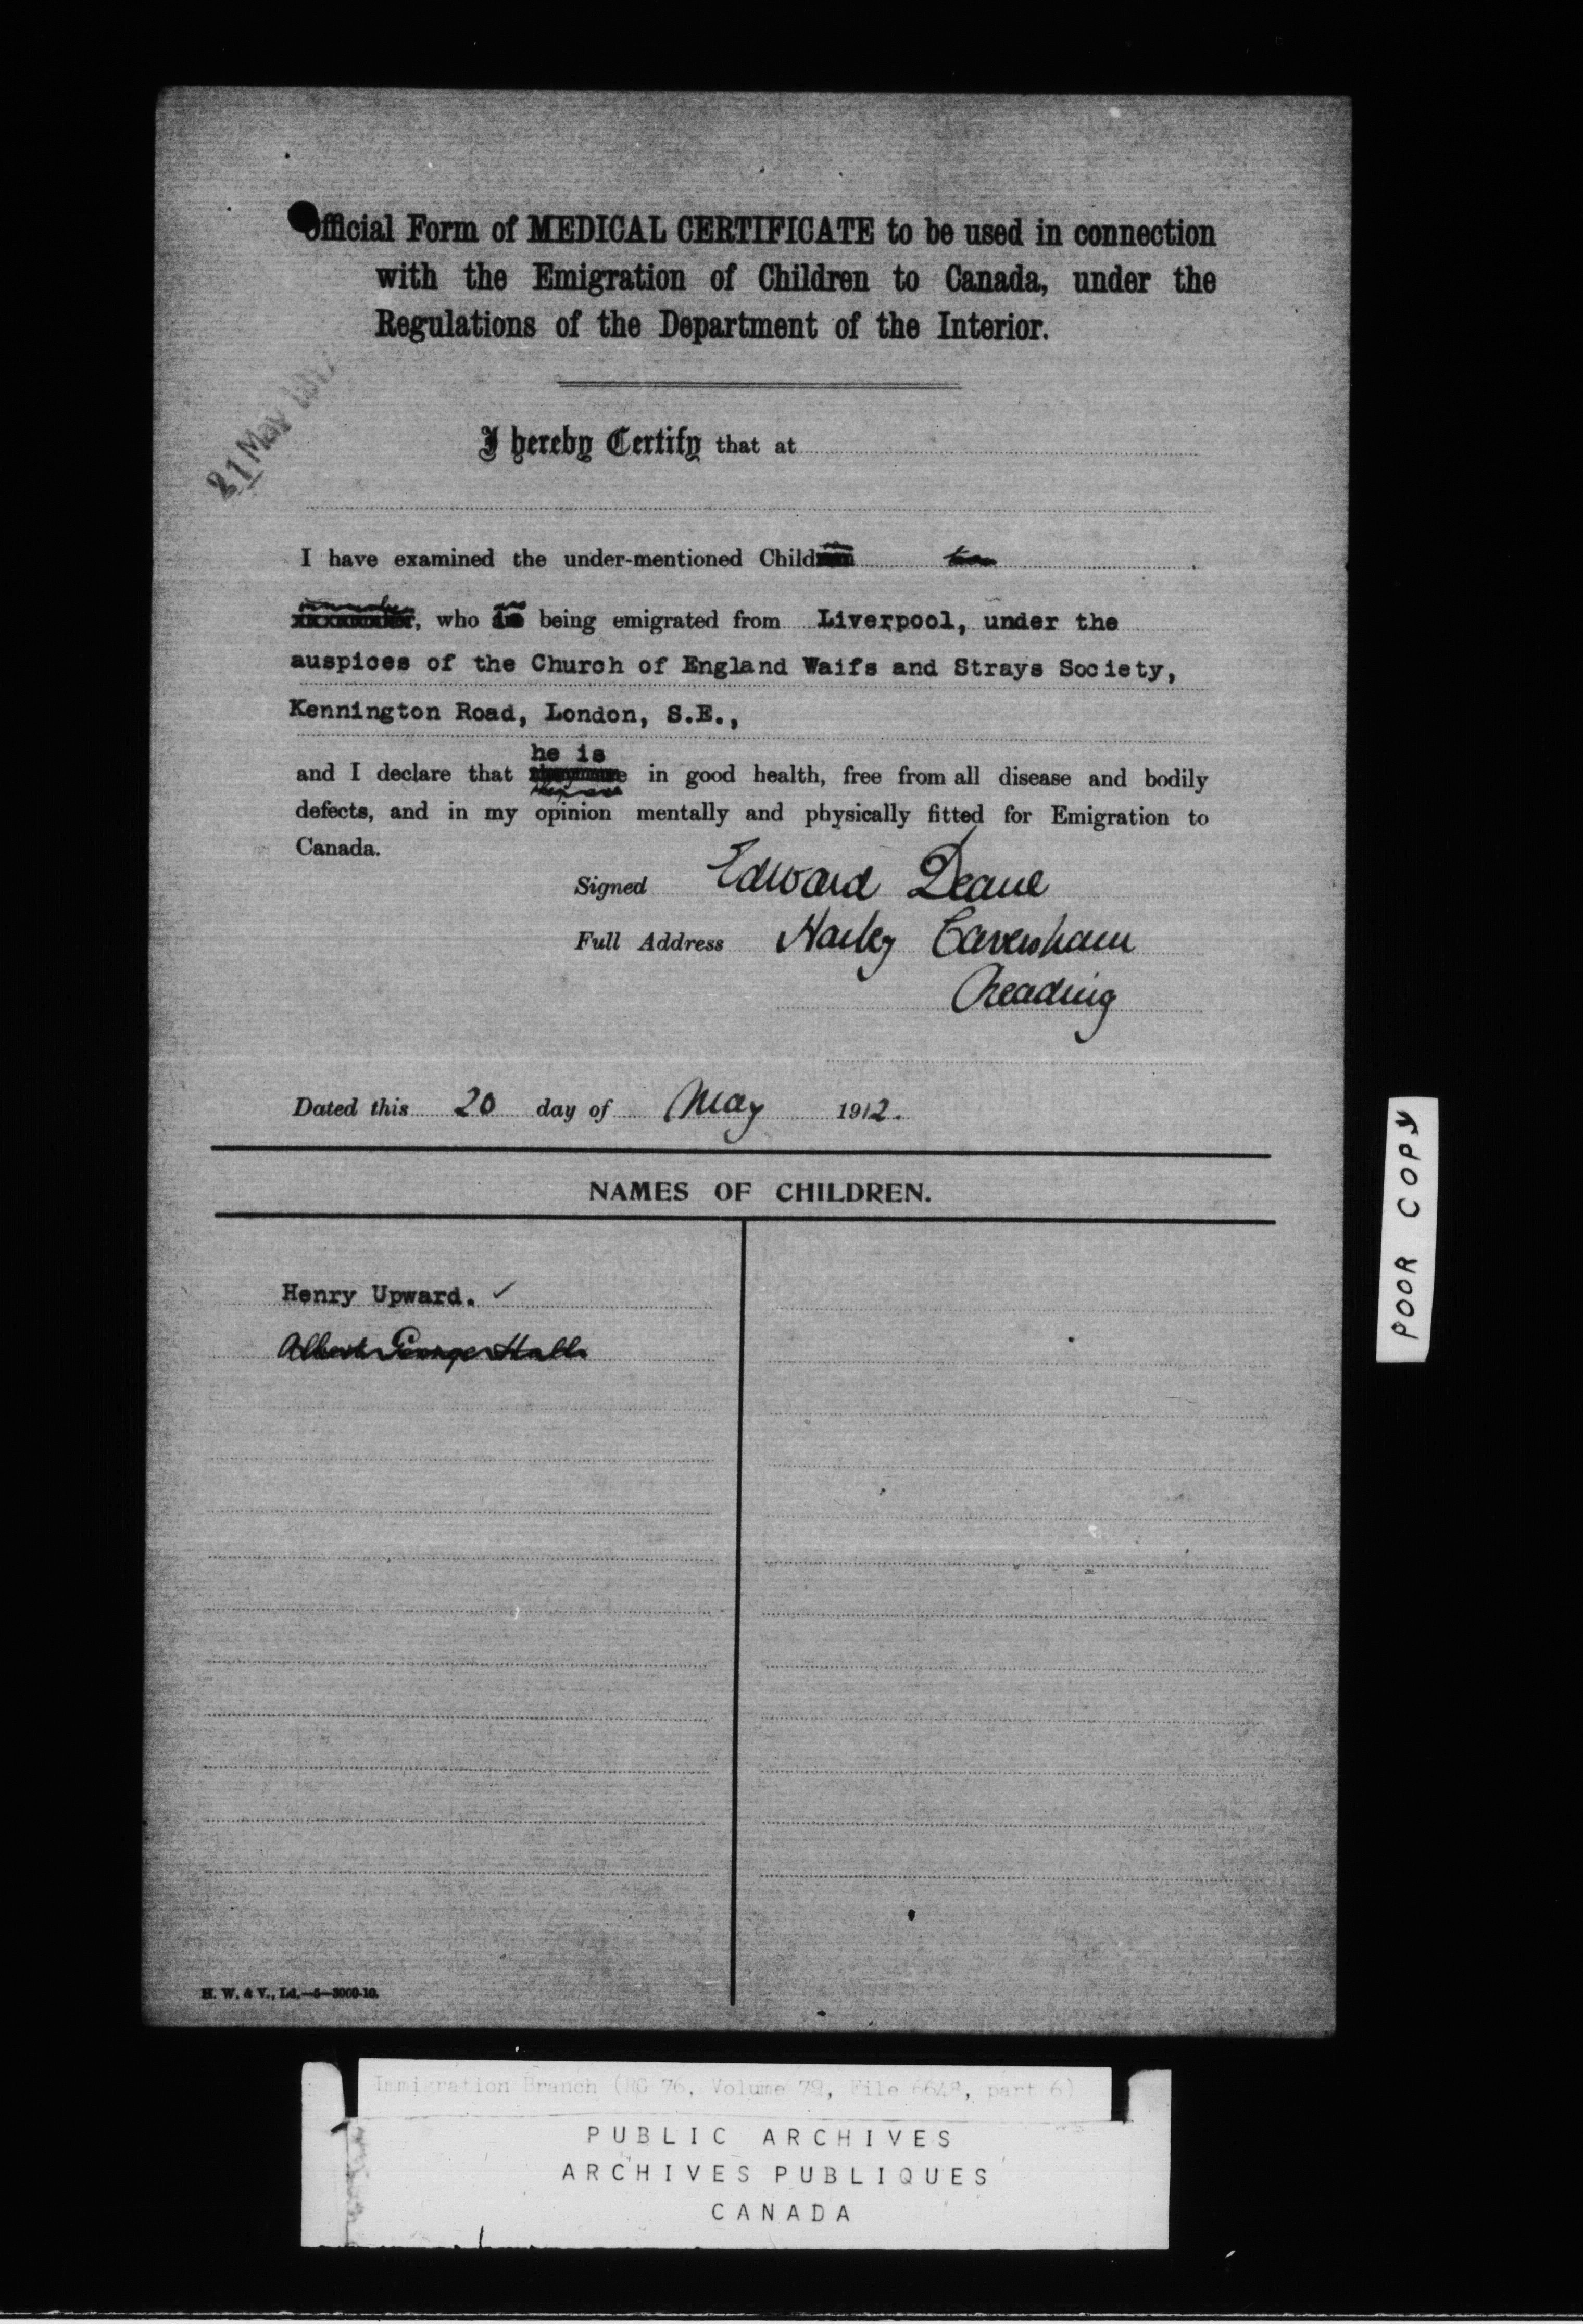 Official Form of MEDICAL CERTIFICATE to be used in connection
with the Emigration of Children to Canada, under the
Regulations of the Department of the Interior.
21 May 1912
I hereby Certify that at
I have examined the under-mentioned Child
, who is being emigrated from Liverpool, under the
auspices of the Church of England Waifs and Strays Society,
Kennington Road, London, S.E.,
he is
and I declare that in good health, free from all disease and bodily
defects, and in my opinion mentally and physically fitted for Emigration to
Canada.
Signed Edward Deane
Full Address Caversham
Reading
Dated this 20 day of May 1912.
NAMES OF CHILDREN.
Henry Upward. ✓
Albert George Hall
H. W. & V., Ld.—5—3000-10.
POOR COPY
Immigration Branch (RG 76, Volume 79, File 6648, part 6)
PUBLIC ARCHIVES
ARCHIVES PUBLIQUES
CANADA